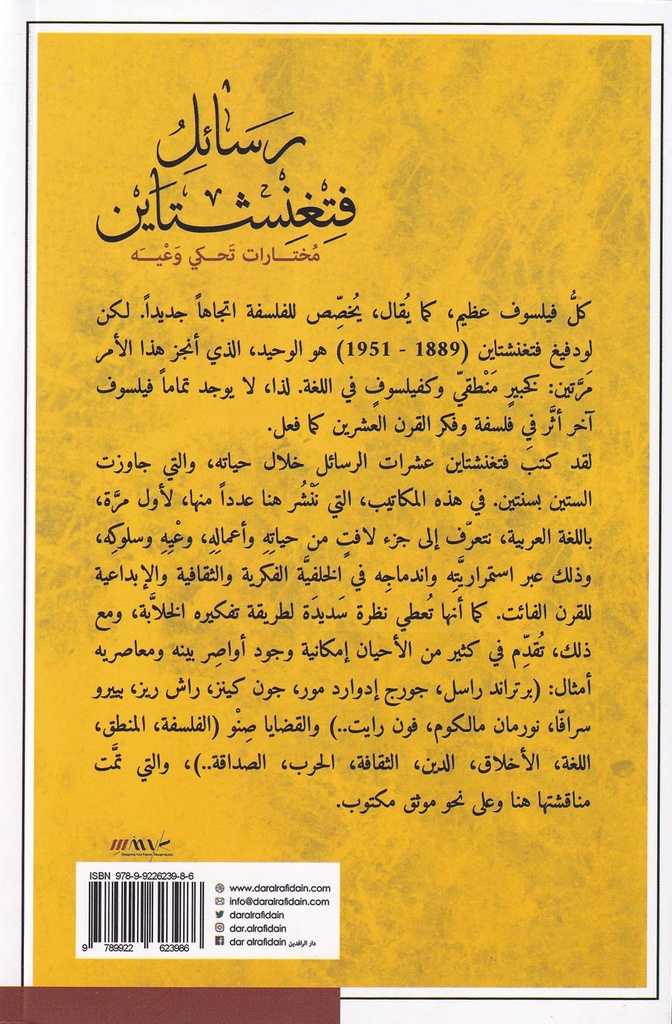 رَسَائلُ
فِتغِنشتاين
مُختارات تَحكي وَعْيَه
كلُّ فيلسوف عظيم، كما يُقال، يُخصِّص للفلسفة اتجاهاً جديداً. لكن
لودفيغ فتغنشتاين (1889 - 1951) هو الوحيد، الذي أنجز هذا الأمر
مَرَّتين: كخبيرٍ مَنْطقيّ وكفيلسوفٍ في اللغة. لذا، لا يوجد تماماً فيلسوف
آخر أثَّر في فلسفة وفكر القرن العشرين كما فعل.
لقد كتبَ فتغنشتاين عشرات الرسائل خلال حياته، والتي جاوزت
الستين بسنتين. في هذه المكاتيب، التي نَنْشُر هنا عدداً منها، لأول مرَّة،
باللغة العربية، نتعرّف إلى جزء لافتٍ من حياتِهِ وأعمالِهِ، وعْيِهِ وسلوكِه،
وذلك عبر استمراريَّتِه واندماجِه في الخلفيَّة الفكرية والثقافية والإبداعية
للقرن الفائت. كما أنها تُعطي نظرة سَديدَة لطريقة تفكيره الخلاَّبة، ومع
ذلك، تُقدِّم في كثير من الأحيان إمكانية وجود أواصِر بينه ومعاصريه
أمثال: (برتراند راسل، جورج إدوارد مور، جون كينز، راش ريز، بييرو
سرافّا، نورمان مالكوم، فون رايت..) والقضايا صِنْو (الفلسفة، المنطق،
اللغة، الأخلاق، الدين، الثقافة، الحرب، الصداقة..)، والتي تمَّت
مناقشتها هنا وعلى نحو موثق مكتوب.
ISBN 978-9-9226239-8-6
9 789922 623986
www.daralrafidain.com
info@daralrafidain.com
daralrafidain
dar.alrafidain
dar alrafidain دار الرافدين